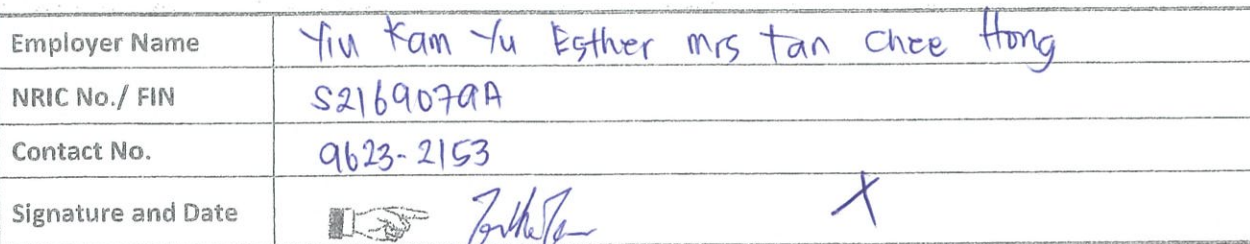 Employer Name Yiu Kam Yu Esther mrs tan Chee Hong
NRIC No./ FIN S2169079A
Contact No. 9623-2153
Signature and Date X